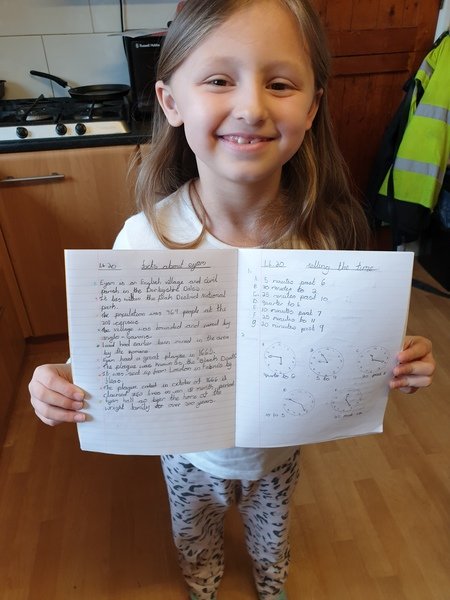 Russell Hobbs
1.6.20 facts about eyam
Eyam is an English village and civil
parish in the Derbyshire Dales.
It lies within the Peak District National
park.
the population was 969 people at the
2011
the village was founded and named by
anglo-Saxons
lead had earlier been mined in the area
by the romans
Eyam had a great plague in 1665.
The plague was known as the
It was sent up from London in fabrics by
fleas.
the plague ended in october of 1666 it
claimed 260 lives in 14 months period
Eyam hall was the home of the
wright family for over 300 years.
1.6.20 telling the time
5 minutes past 6
10 minutes to 2
25 minutes past 10
quarter to 6
10 minutes past 7
25 minutes to 11
20 minutes past 9
quarter to 6
5 to 4